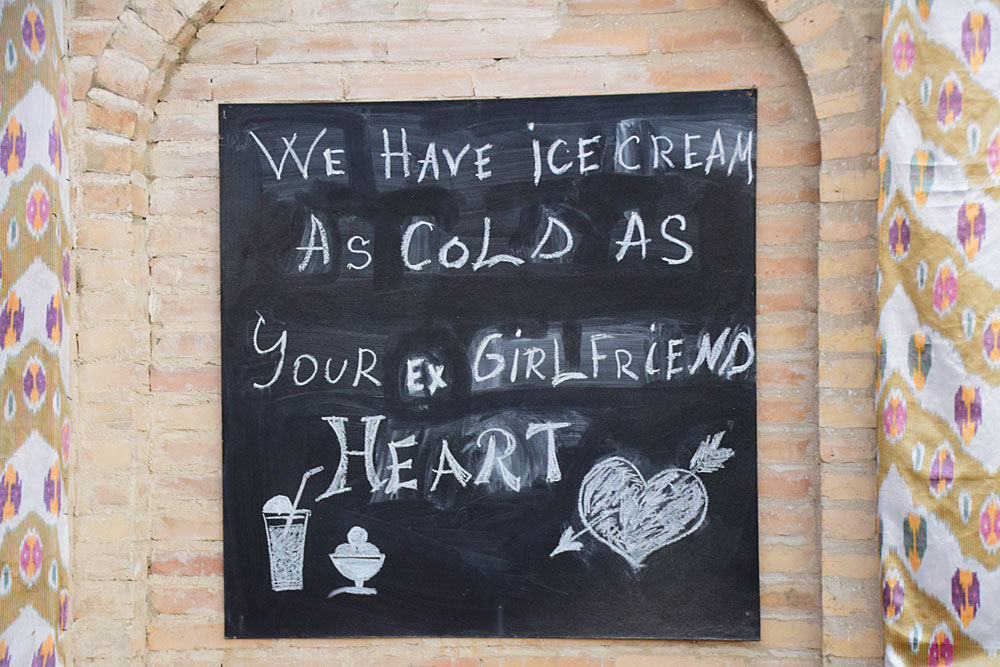 WE HAVE iCE CREAM
AS COLD AS
YOUR EX GiRLFRiEND
HEART